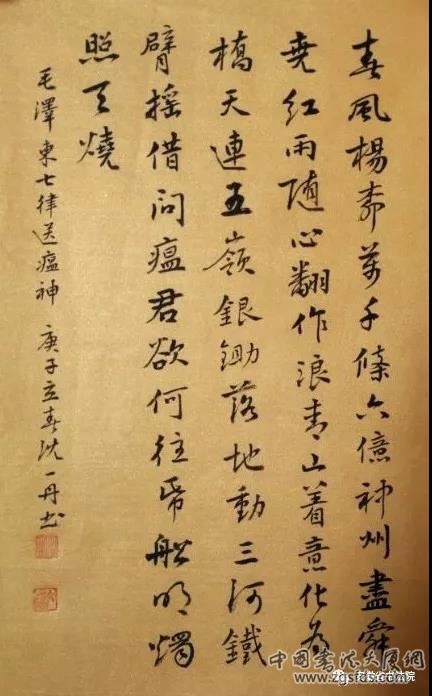 春風楊柳萬千條六億神州盡舜
尭紅雨随心翻作浪青山着意化為
橋天連五嶺銀鋤落地動三河鐵
臂摇借问瘟君欲何往帋船明燭
照天燒
毛澤東七律送瘟神 庚子立春沈一丹书
中国书法大展网
www.zgsfdz.com